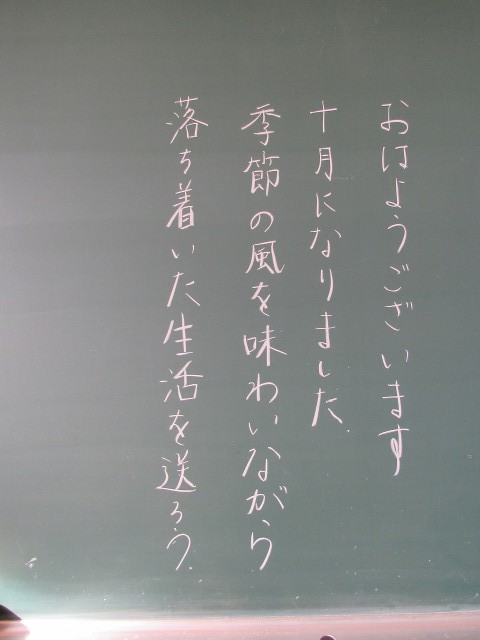 おはようございます
十月になりました.
季節の風を味わいながら
落ち着いた生活を送ろう.